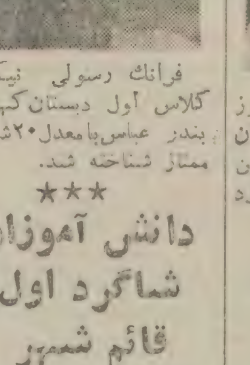 فرانك رسولی
كلاس اول دبستان
بندر عباس با معدل ۲۰
ممتاز شناخته شد.
***
دانش آموزا
شاگرد اول
قائم شهر